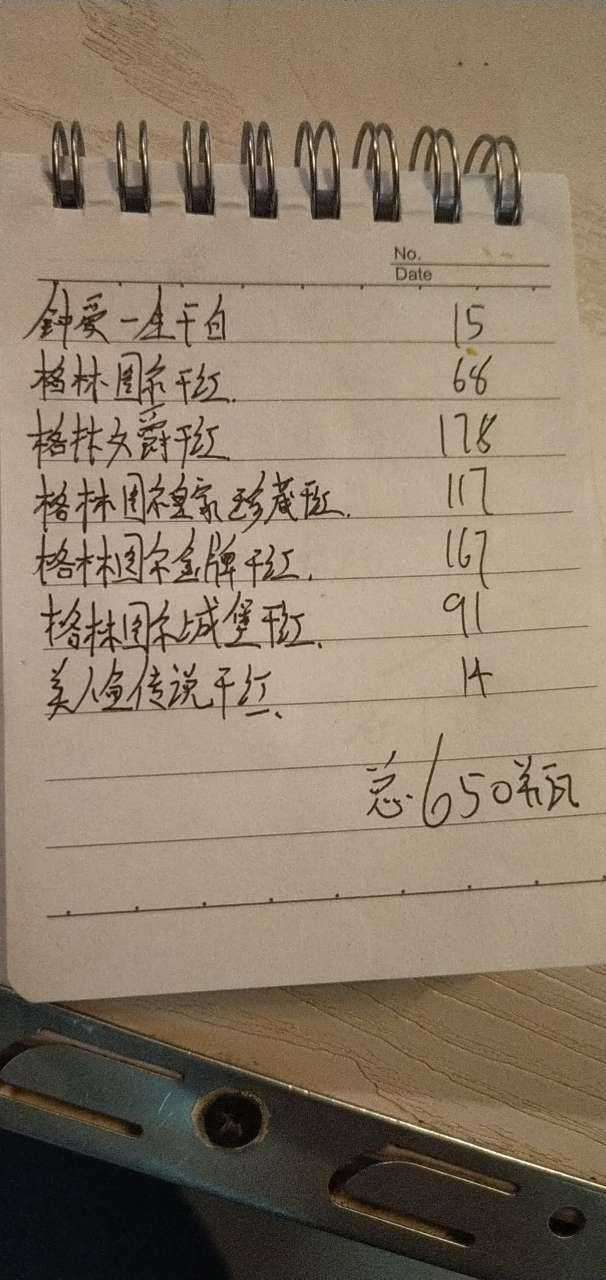 No.
Date
钟爱一生干白 15
格林图尔干红. 68
格林女爵干红 178
格林图尔皇家珍藏干红. 117
格林图尔金牌干红. 167
格林图尔城堡干红. 91
美人鱼传说干红、 14
总.650并瓦